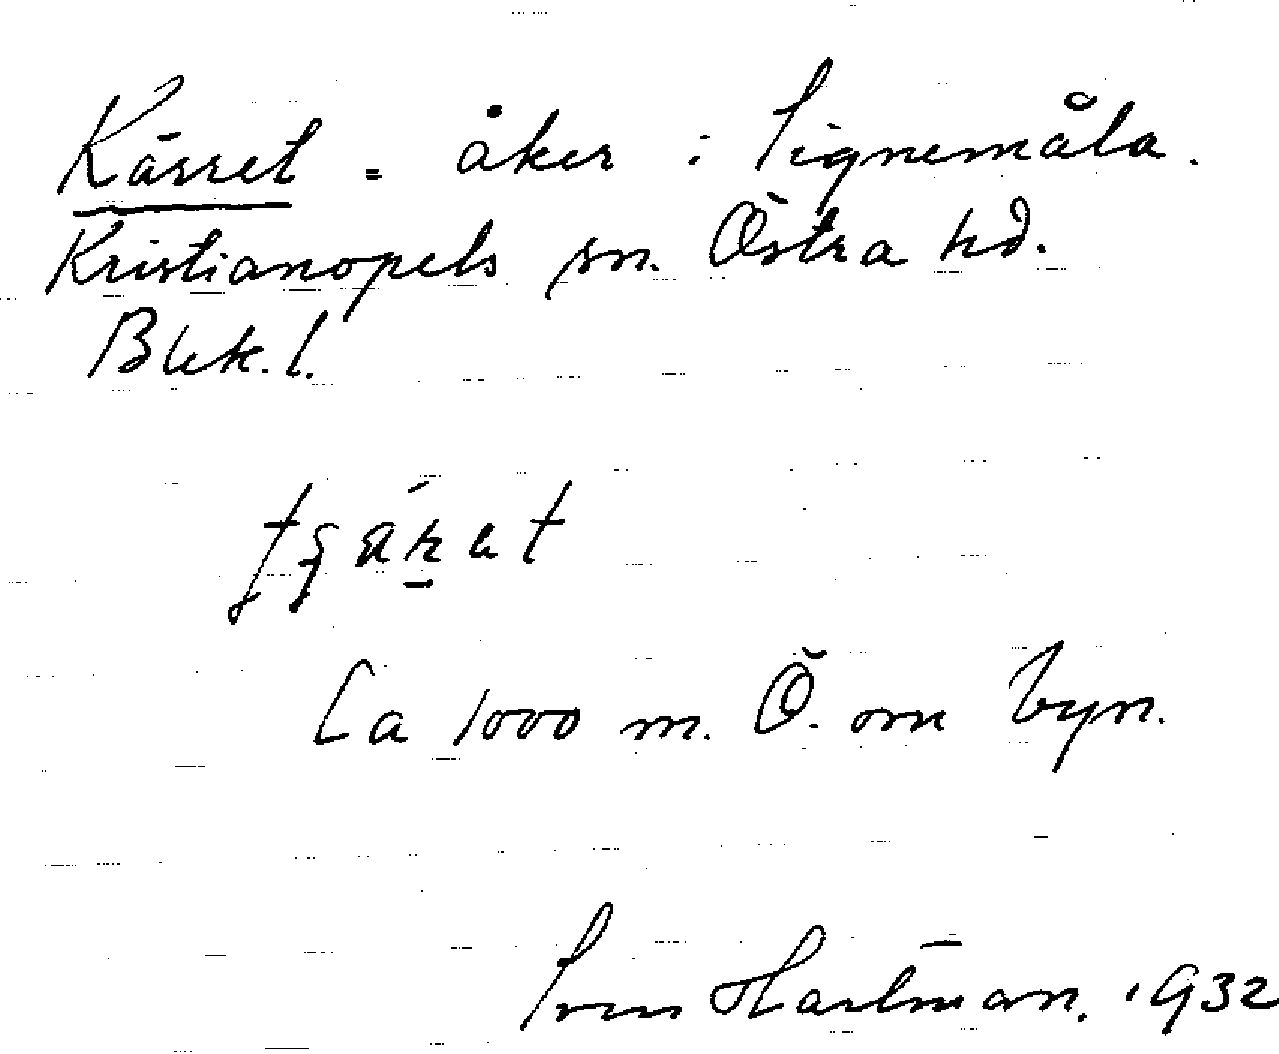 Kärret. åker i Signemåla.
Kristianopels sn. Östra hd.
Blek. l.
Ca 1000 m. Ö. om byn.
Sven Hartman. 1932